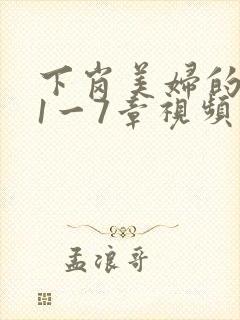 下岗美婦的
1一7章視頻
孟浪哥